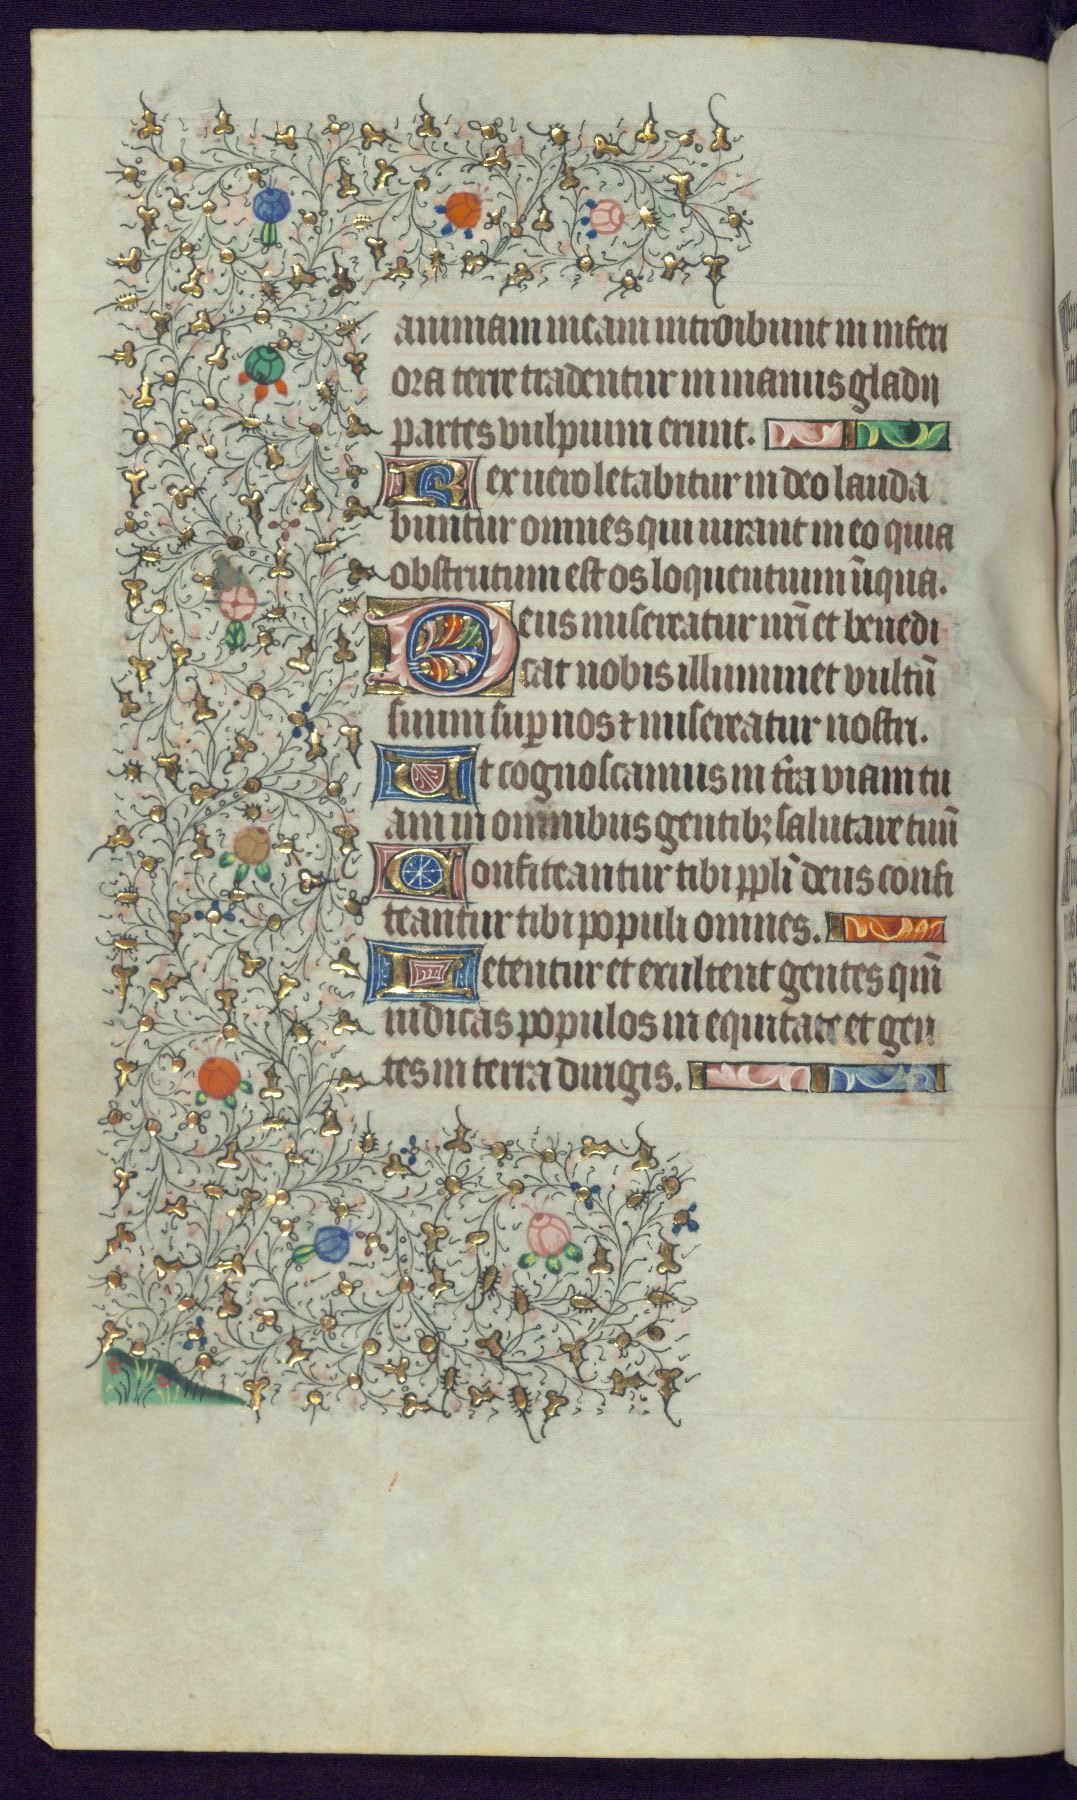 animam meam introibunt in inferi
ora terre tradentur in manus gladii
partes vulpium erunt.
Rex uero letabitur in deo lauda
buntur omnes qui iurant in eo quia
obstrutum est os loquentium iiqua.
Deus misereatur nr̄i et benedi
cat nobis illuminet vultū
suum sup nos ⁊ misereatur nostri.
Ut cognoscamus in t̄ra viam tu
am in omnibus gentibꝫ salutare tuū
Confiteantur tibi ppl̄i deus confi
teantur tibi populi omnes.
Letentur et exultent gentes qm̄
iudicas populos in equitate et gen
tes in terra dirigis.